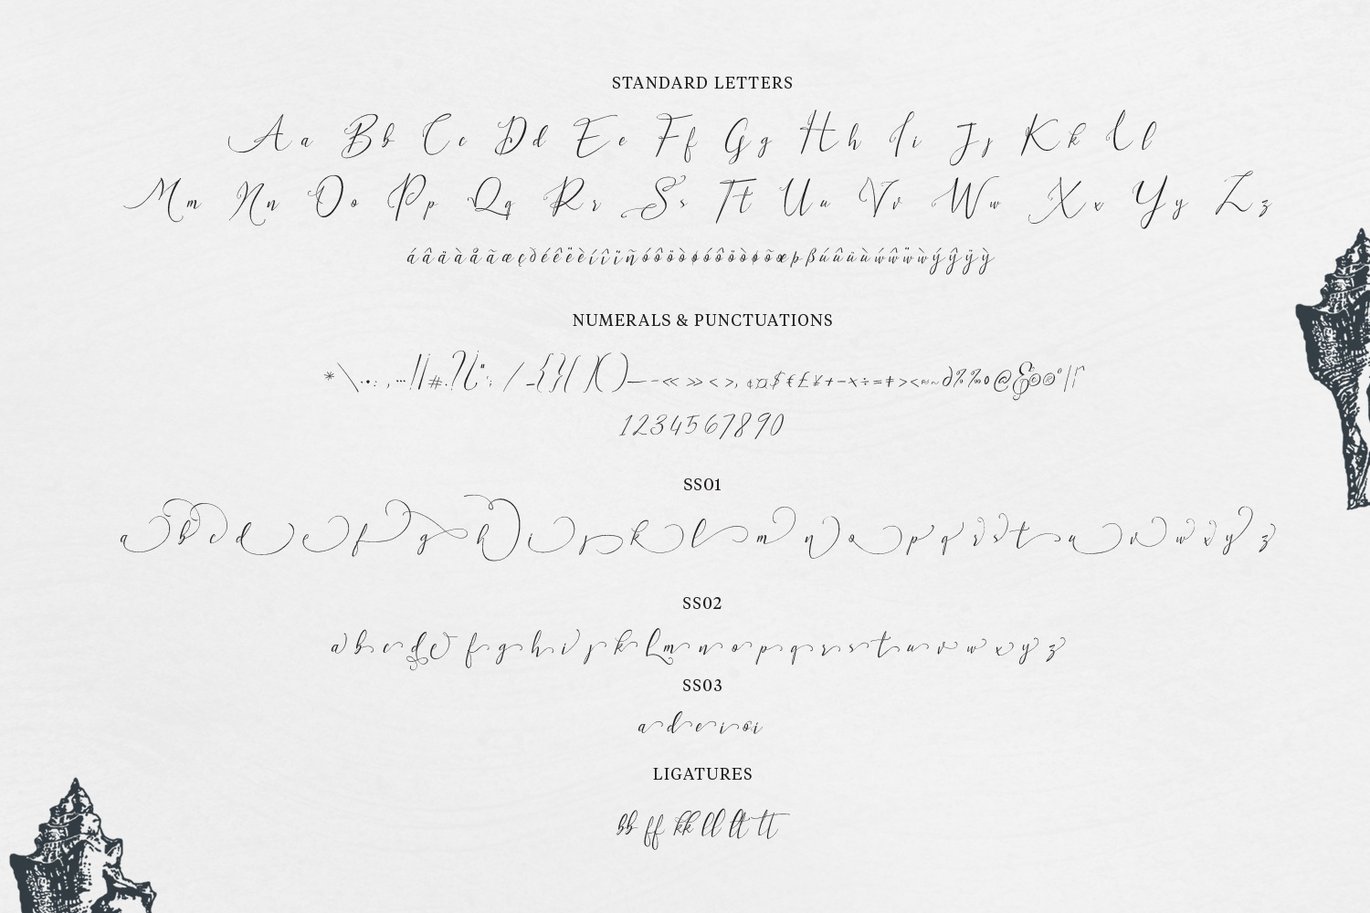 STANDARD LETTERS
A a B b C c D d E e F f G g H h I i J j K k L l
M m N n O o P p Q q R r S s T t U u V v W w X x Y y Z z
NUMERALS & PUNCTUATIONS
1234567890
SS01
a b c d e f g h i j k l m n o p q r s t u v w x y z
SS02
a b c d e f g h i j k l m n o p q r s t u v w x y z
SS03
a d e i
LIGATURES
bb ff kk ll lt tt